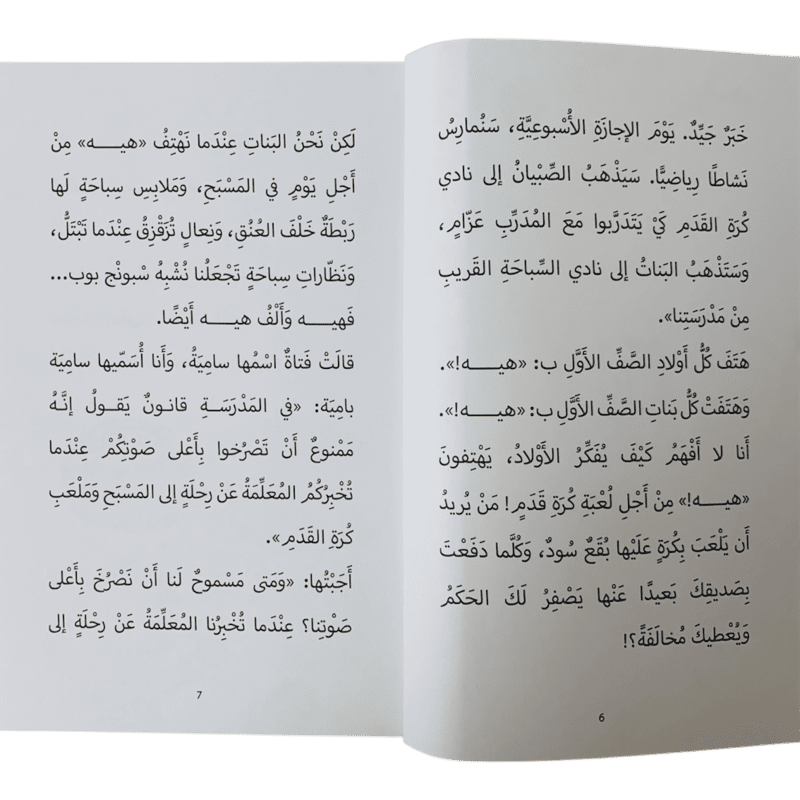 خَبَرٌ جَيِّدٌ. يَوْمَ الإجازَةِ الأُسْبوعِيَّةِ، سَنُمارِسُ
نَشاطًا رِياضِيًّا. سَيَذْهَبُ الصِّبْيانُ إلى نادي
كُرَةِ القَدَمِ كَيْ يَتَدَرَّبوا مَعَ المُدَرِّبِ عَزّامٍ،
وَسَتَذْهَبُ البَناتُ إلى نادي السِّباحَةِ القَريبِ
مِنْ مَدْرَسَتِنا».
هَتَفَ كُلُّ أَوْلادِ الصَّفِّ الأَوَّلِ ب: «هيـــــه!».
وَهَتَفَتْ كُلُّ بَناتِ الصَّفِّ الأَوَّلِ ب: «هيـــــه!».
أَنا لا أَفْهَمُ كَيْفَ يُفَكِّرُ الأَوْلادُ، يَهْتِفونَ
«هيـــــه!» مِنْ أَجِلِ لُعْبَةِ كُرَةِ قَدَمٍ! مَنْ يُريدُ
أَن يَلْعَبَ بِكُرَةٍ عَلَيْها بُقَعٌ سُودٌ، وَكُلَّما دَفَعْتَ
بِصَديقِكَ بَعيدًا عَنْها يَصْفِرُ لَكَ الحَكَمُ
وَيُعْطيكَ مُخالَفَةً؟!
6
لَكِنْ نَحْنُ البَناتِ عِنْدَما نَهْتِفُ «هيـــــه» مِنْ
أَجْلِ يَوْمٍ في المَسْبَحِ، وَمَلابِسِ سِباحَةٍ لَها
رَبْطَةٌ خَلْفَ العُنُقِ، وَنِعالٍ تُزَقْزِقُ عِنْدَما تَبْتَلُّ،
وَنَظّاراتِ سِباحَةٍ تَجْعَلُنا نُشْبِهُ سْبونْج بوب...
فَهيـــــه وَأَلْفُ هيـــــه أَيْضًا.
قالَتْ فَتاةٌ اسْمُها سامِيَةُ، وَأَنا أُسَمّيها سامِيَة
بامِيَة: «في المَدْرَسَةِ قانونٌ يَقولُ إنَّهُ
مَمْنوعٌ أَنْ تَصْرُخوا بِأَعْلى صَوْتِكُمْ عِنْدَما
تُخْبِرُكُمُ المُعَلِّمَةُ عَنْ رِحْلَةٍ إلى المَسْبَحِ وَمَلْعَبِ
كُرَةِ القَدَمِ».
أَجَبْتُها: «وَمَتى مَسْموحٌ لَنا أَنْ نَصْرُخَ بِأَعْلى
صَوْتِنا؟ عِنْدَما تُخْبِرُنا المُعَلِّمَةُ عَنْ رِحْلَةٍ إلى
7